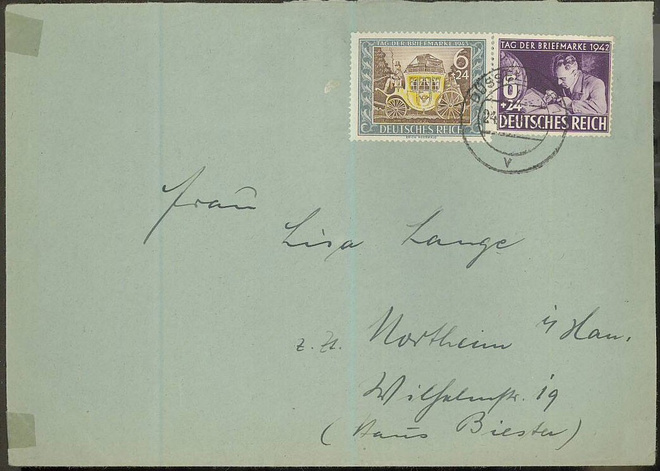 TAG DER BRIEFMARKE 1943
6+24
DEUTSCHES REICH
TAG DER BRIEFMARKE 1942
6
+24
DEUTSCHES REICH
24
v
Frau
Lisa Lange
z. Zt. Northeim i/Han.
Wilhelmstr. 19
(Haus Biester)